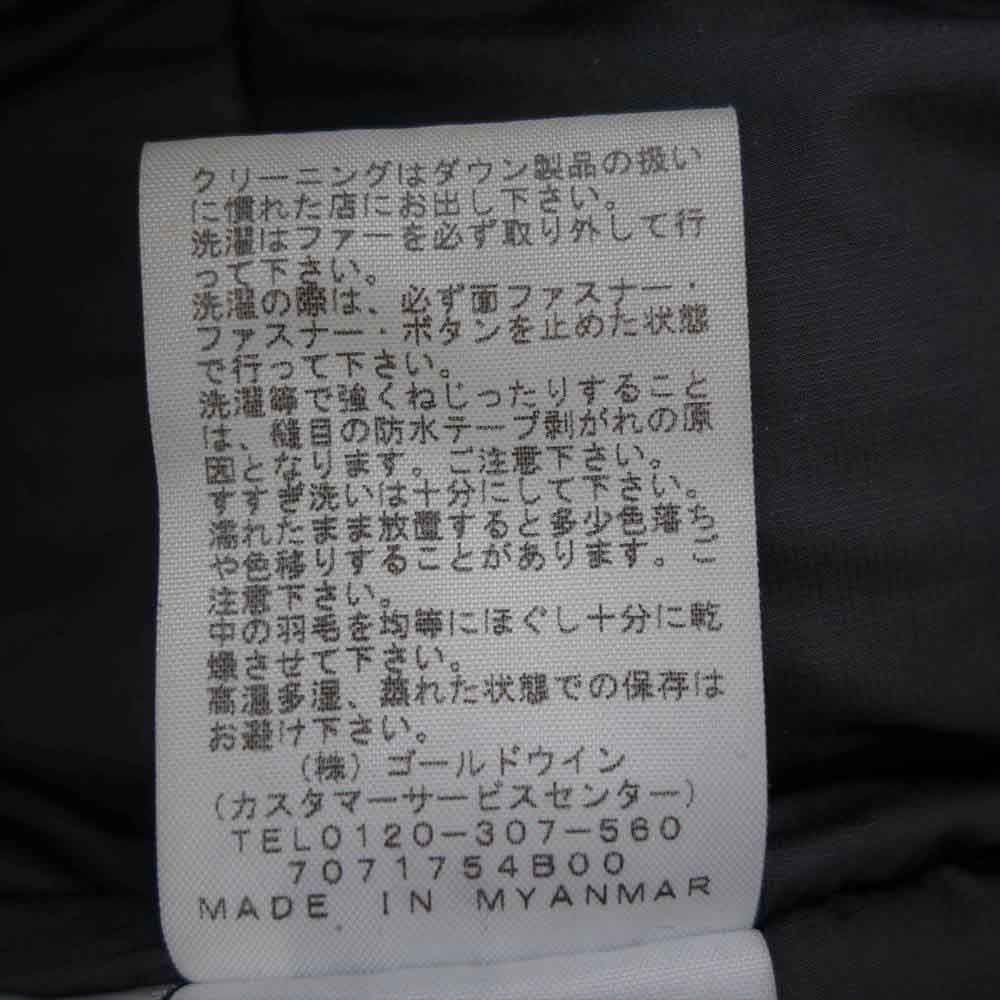 クリーニングはダウン製品の扱い
に慣れた店にお出し下さい。
洗濯はファーを必ず取り外して行
って下さい。
洗濯の際は、必ず面ファスナー・
ファスナー・ボタンを止めた状態
で行って下さい。
洗濯等で強くねじったりすること
は、縫目の防水テープ剥がれの原
因となります。ご注意下さい。
すすぎ洗いは十分にして下さい。
濡れたまま放置すると多少色落ち
や色移りすることがあります。ご
注意下さい。
中の羽毛を均等にほぐし十分に乾
燥させて下さい。
高温多湿、蒸れた状態での保存は
お避け下さい。
(株)ゴールドウイン
(カスタマーサービスセンター)
TEL0120-307-560
7071754B00
MADE IN MYANMAR